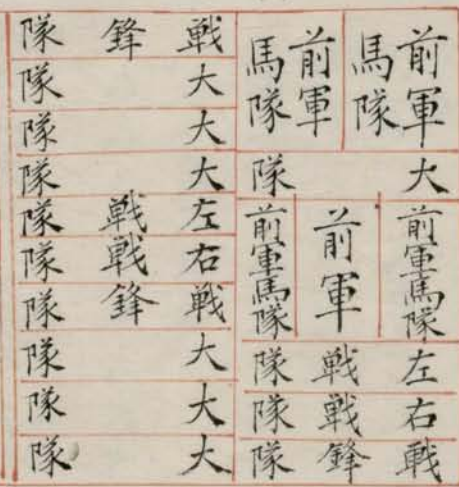 前軍
馬隊
前軍
馬隊
大隊
前軍馬隊
前軍
前軍馬隊
左戦隊
右戦隊
戦鋒隊
戦鋒隊
大隊
大隊
大隊
左戦隊
右戦隊
戦鋒隊
大隊
大隊
大隊